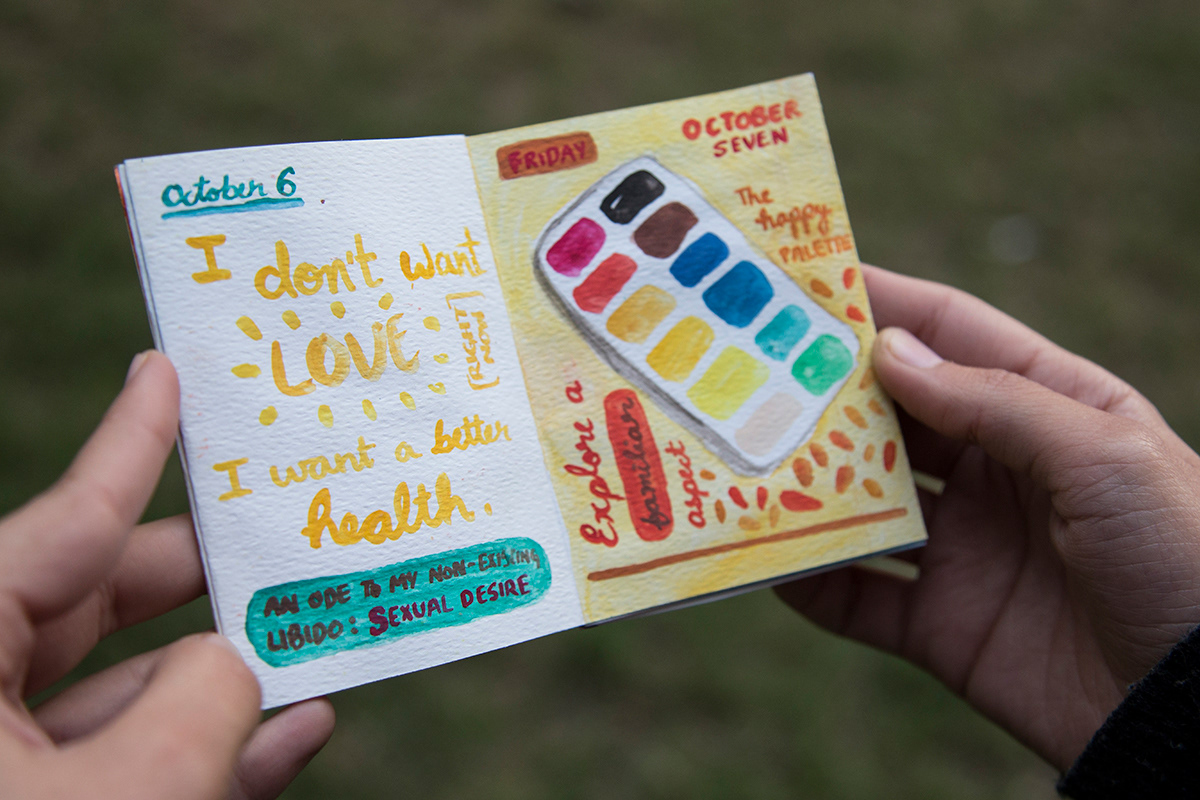 October 6
I don't want
LOVE
[RIGHT
NOW]
I want a better
health.
AN ODE TO MY NON-EXISTING
LIBIDO: SEXUAL DESIRE
FRIDAY
OCTOBER
SEVEN
The
happy
PALETTE
Explore a
familiar
aspect